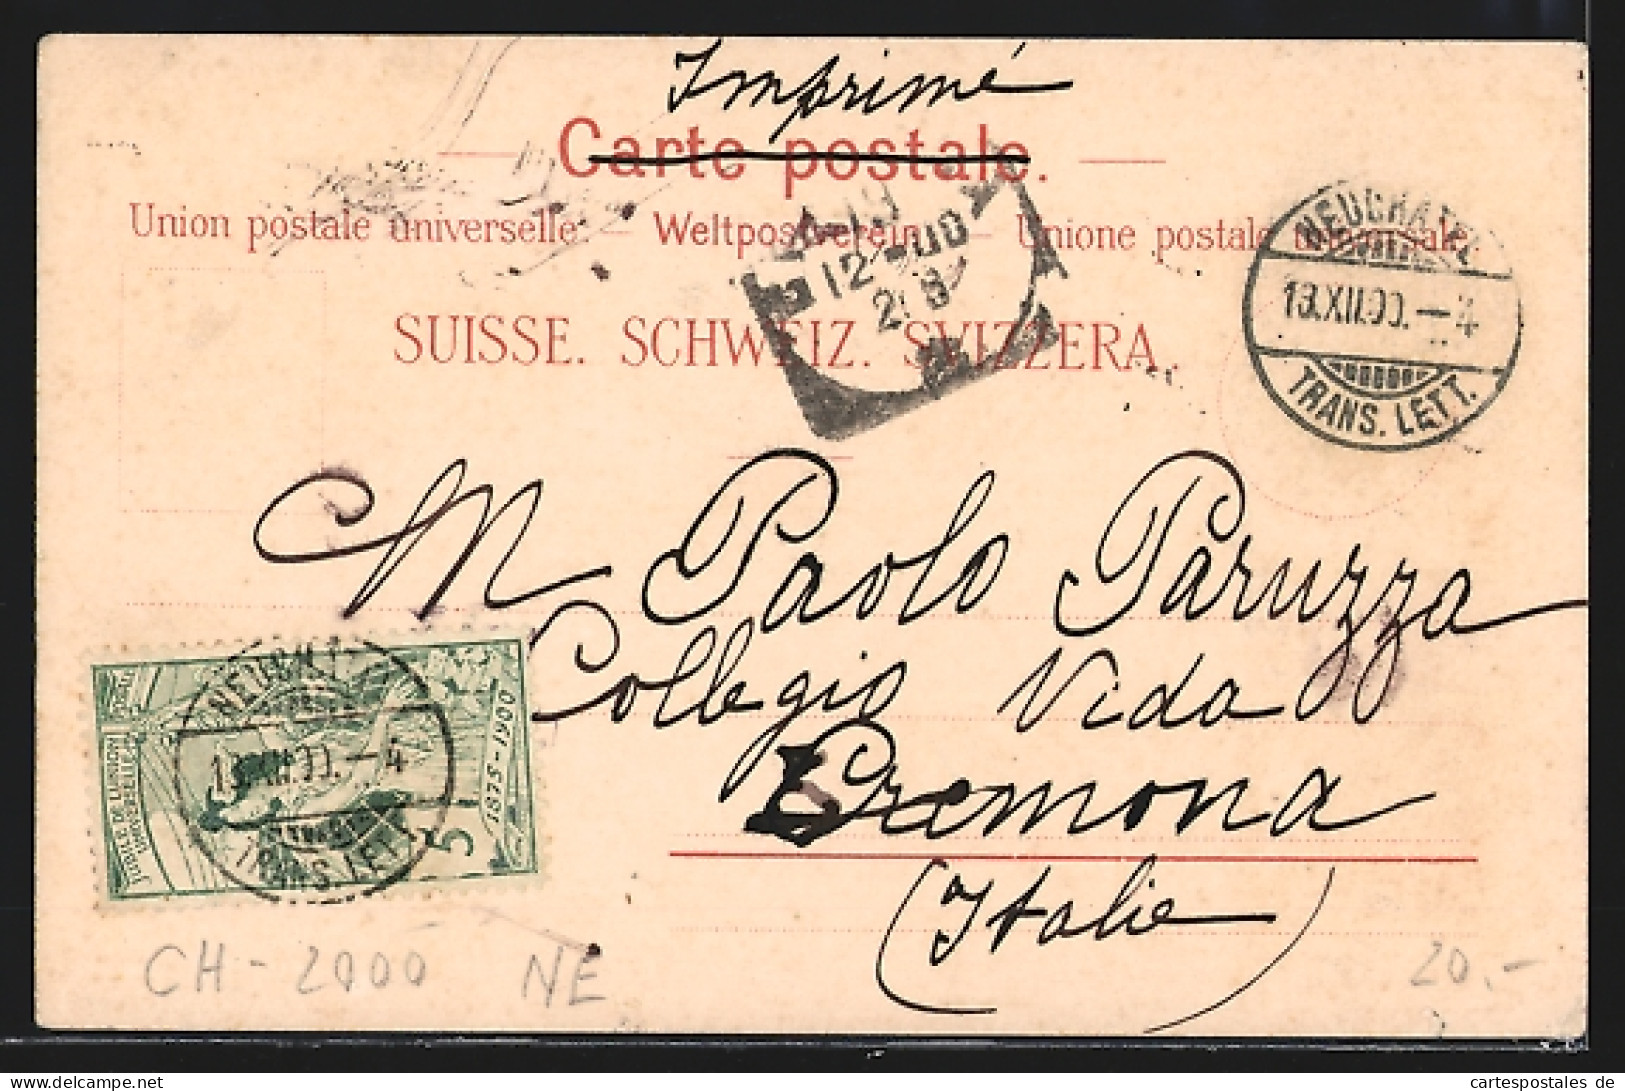 Imprimé
Carte postale.
Union postale universelle. — Weltpostverein. — Unione postale universale.
SUISSE. SCHWEIZ. SVIZZERA.
12
NEUCHATEL
13.XII.00. — 4
TRANS. LETT.
M Paolo Paruzza
Collegio Vida
Cremona
(Italie)
JUBILÉ DE L'UNION
UNIVERSELLE
1875-1900
5
NEUCHATEL
13.XII.00. — 4
TRANS. LETT.
CH-2000 NE
20.-
cartespostales de